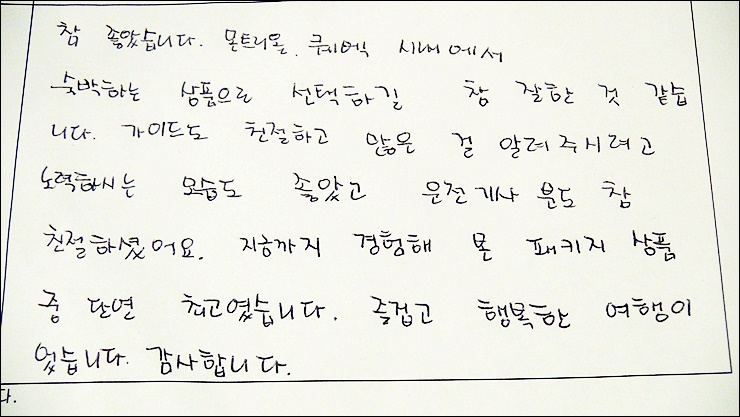 참 좋았습니다. 몬트리올. 퀘벡 시내에서
숙박하는 상품으로 선택하길 참 잘한 것 같습
니다. 가이드도 친절하고 많은 걸 알려주시려고
노력하시는 모습도 좋았고 운전기사 분도 참
친절하셨어요. 지금까지 경험해 본 패키지 상품
중 단연 최고였습니다. 즐겁고 행복한 여행이
었습니다. 감사합니다.
다.